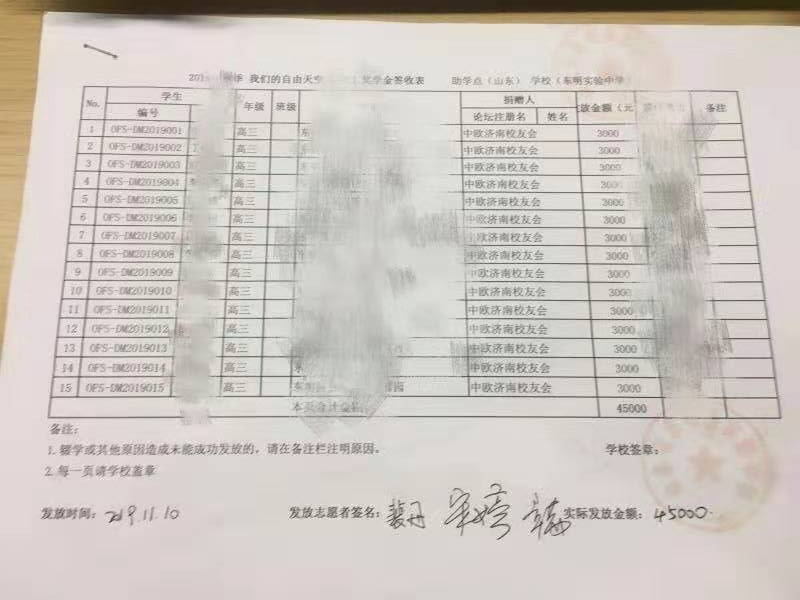 我们的自由天空 奖学金签收表 助学点（山东） 学校（东明实验中学）
No. 学生 年级 班级 捐赠人 发放金额（元） 备注
编号 论坛注册名 姓名
1 OFS-DM2019001 高三 中欧济南校友会 3000
2 OFS-DM2019002 高三 中欧济南校友会 3000
3 OFS-DM2019003 高三 中欧济南校友会 3000
4 OFS-DM2019004 高三 中欧济南校友会 3000
5 OFS-DM2019005 高三 中欧济南校友会 3000
6 OFS-DM2019006 高三 中欧济南校友会 3000
7 OFS-DM2019007 高三 中欧济南校友会 3000
8 OFS-DM2019008 高三 中欧济南校友会 3000
9 OFS-DM2019009 高三 中欧济南校友会 3000
10 OFS-DM2019010 高三 中欧济南校友会 3000
11 OFS-DM2019011 高三 中欧济南校友会 3000
12 OFS-DM2019012 高三 中欧济南校友会 3000
13 OFS-DM2019013 高三 中欧济南校友会 3000
14 OFS-DM2019014 高三 中欧济南校友会 3000
15 OFS-DM2019015 高三 中欧济南校友会 3000
本页合计金额 45000
备注：
1. 辍学或其他原因造成未能成功发放的，请在备注栏注明原因。 学校签章：
2. 每一页请学校盖章
发放时间：2019.11.10 发放志愿者签名： 实际发放金额：45000.